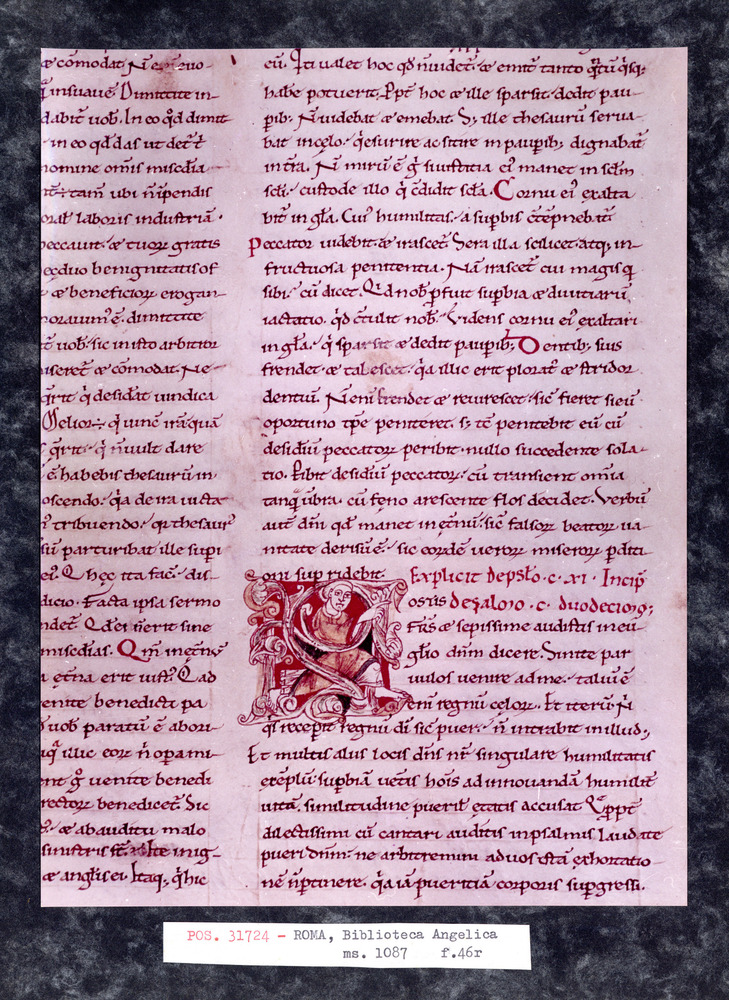 & cōmodat. N̄ e
q̄ insuaue. Dimittite in-
dabit̄ uob. In eo qd̄ dimit
in eo qd̄ das ut det̄
nomine om̄is misc̄dia
tam ubi n̄ ipendis
laboris industriā.
peccauit. & tuoꝝ gratis
benignitatis of
& beneficioꝝ erogan-
dimittite
uob. sic in isto arbitrior
& cōmodat. Ne-
q̄rit q̄ desid̄at uindictā
Melior q̄ uinc̄ irā quā
q̄rit. q̄ n̄ uult dare
habebis thesaurū in
noscendo. q̄a de ira iusta
tribuendo. qi thesaur᷒
parturibat ille supi
Q hęc ita fac̄. dis-
dicio. Facta ipsa sermo
sine
misc̄dias. Qm̄ in et̄nū
ęt̄na erit iust̄. Q ad
uenite benedicti pa
uob paratū ē abori
illic eoꝝ n̄ opa mi-
g̊ uenite benedi
rectoꝝ benedicet̄. Sic
& ab auditu malo
sinistris
& angl̄is ei. Itaq; q̄ hic
eū. Iti ualet hoc qd̄ n̄ uidet̄. & emit̄ tanto q̄tū q̄sq;
habe potuerit. Ppt̄ hoc & ille sparsit. dedit pau-
pib;. N̄ uidebat & emebat. S; ille thesaurū serua-
bat in cęlo. q̄ esurire ac sitire in paupib; dignabat̄
in t̄ra. N̄ mirū ē g̊ si iustitia ei᷒ manet in sc̄lm
sc̄li. custode illo q̄ c̄didit sc̄la. Cornu ei᷒ exalta
bit̄ in gl̄a. Cui᷒ humilitas. a supbis c̄tēpnebat̄
Peccator uidebit. & irascet̄. Sera illa scilicet. atq; in-
fructuosa penitentia. Nā irascet̄ cui magis q̄
sibi. cū dicet. Qid nob̄ pfuit supbia & diuitiarū
iactatio. qd̄ c̄tulit nob̄. Videns cornu ei᷒ exaltari
in gl̄a. q̄ sparsit & dedit paupib;. Dentib; suis
frendet & tabescet. q̄a illic erit plorat᷒ & stridor
dentiū. N̄ eni frendet & reuirescet. sic̄ fieret si eū
oportuno tp̄e peniteret. s; tc̄ penitebit eū cū
desidiū peccatoꝝ peribit. nullo succedente sola-
tio. Pibit desidiū peccatoꝝ. cū transient om̄ia
tanq̄ ūbra. cū feno arescente flos decidet. Verbū
aut̄ dn̄i qd̄ manet in ęt̄nū. sic̄ falsoꝝ beatoꝝ ua-
nitate derisū ē. sic eordē ueroꝝ miseroꝝ pditi
oni sup ridebit.
Explicit de psl̄o. c. xi. Incip̄
osius de psalmo. c. duodecimo;
Fr̄s & sepissime audistis in eu
gl̄io dn̄m dicere. Sinite par
uulos uenire ad me. taliū ē
eni regnū celoꝝ. Et iterū. N̄
q̄i recepit regnū dī sic̄ puer. n̄ intrabit in illud;
Et multis aliis locis dn̄s nr̄ singulare humilitatis
exēplū supbiā uet̄is hōis ad innouandā humilit̄
uitā. similitudine pueril̄ ętatis accusat. Vppt̄
dilectissimi cū cantari auditis in psalmis Laudate
pueri dn̄m. ne arbitremini ad uos istā exhortatio-
nē n̄ ptinere. q̄a iā pueritiā corporis supgressi.
POS. 31724 – ROMA, Biblioteca Angelica
ms. 1087 f.46r